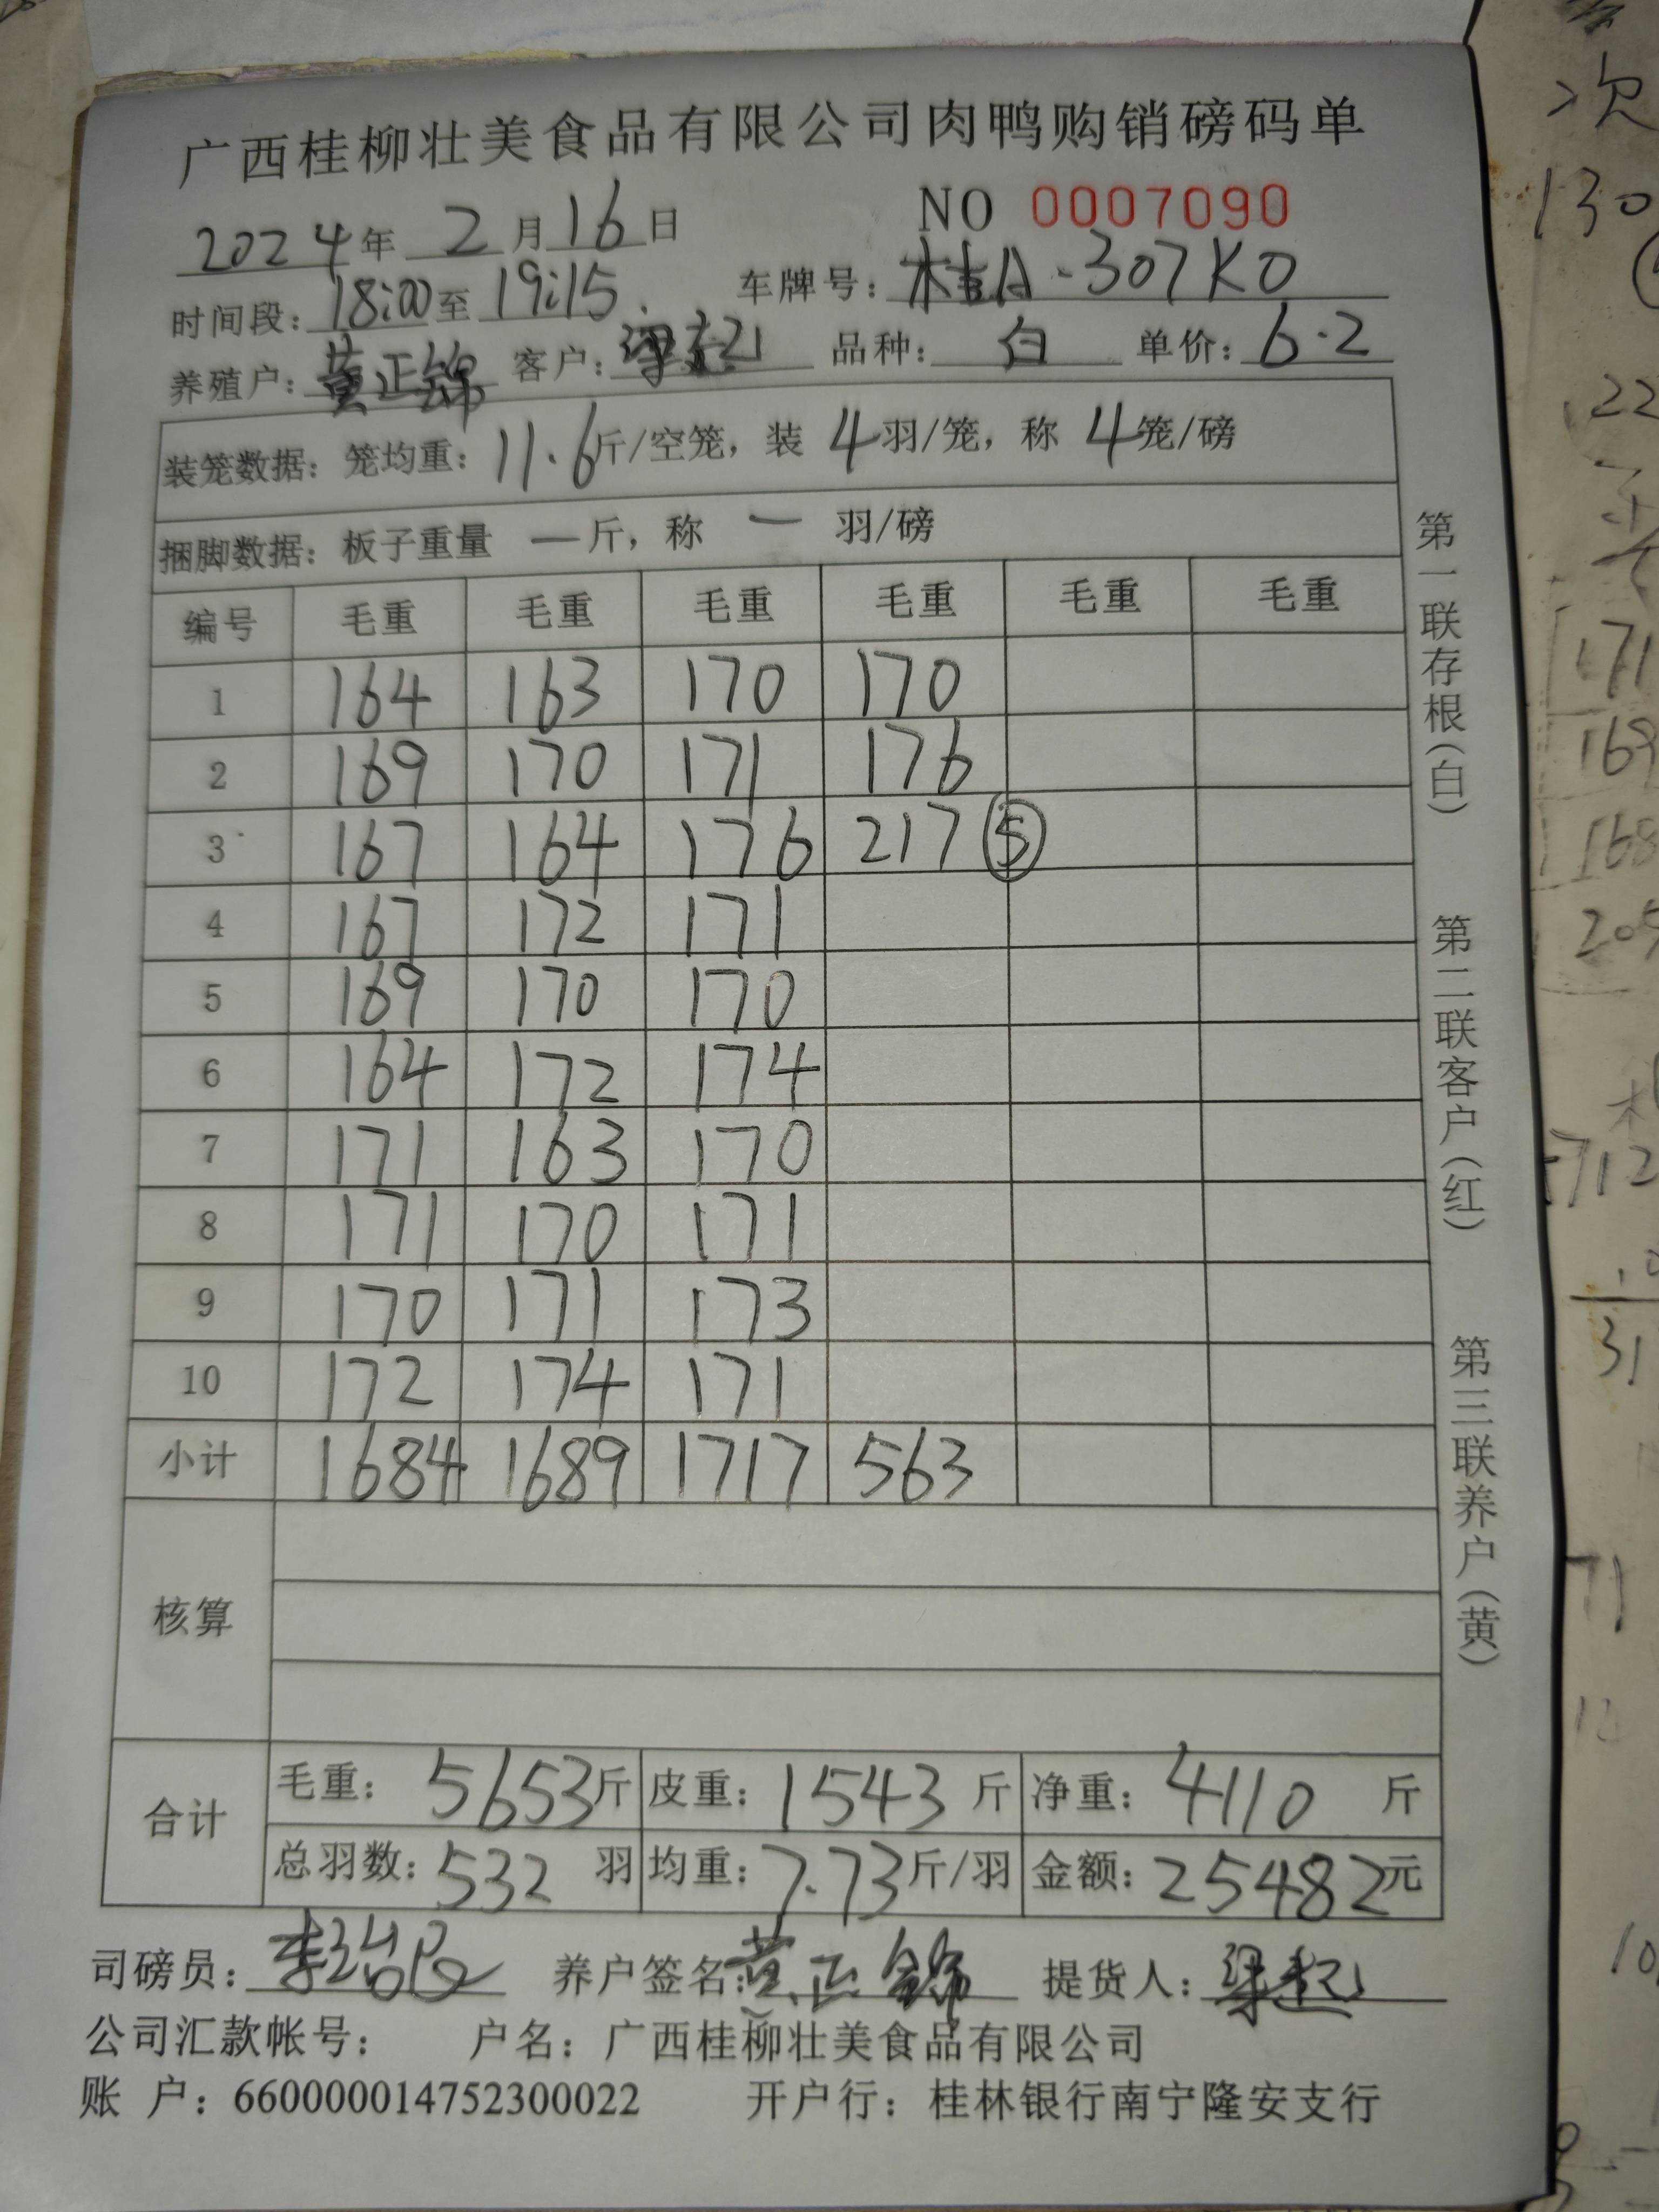 广西桂柳壮美食品有限公司肉鸭购销磅码单
2024年 2月16日 NO 0007090
时间段：18:00至 19:15. 车牌号：桂A-307K0
养殖户：黄正锦 客户：梁起 品种：白 单价：6.2
装笼数据：笼均重：11.6斤/空笼，装 4羽/笼，称 4笼/磅
捆脚数据：板子重量 一斤，称 一 羽/磅
编号 毛重 毛重 毛重 毛重 毛重 毛重
1 164 163 170 170
2 169 170 171 176
3 167 164 176 217 ⑤
4 167 172 171
5 169 170 170
6 164 172 174
7 171 163 170
8 171 170 171
9 170 171 173
10 172 174 171
小计 1684 1689 1717 563
核算
合计
毛重：5653斤 皮重：1543斤 净重：4110斤
总羽数：532羽 均重：7.73斤/羽 金额：25482元
司磅员： 养户签名：黄正锦 提货人：梁起
公司汇款帐号： 户名：广西桂柳壮美食品有限公司
账 户：660000014752300022 开户行：桂林银行南宁隆安支行
第一联存根（白） 第二联客户（红） 第三联养户（黄）
次
130
22
171
169
168
205
712
31
71
10